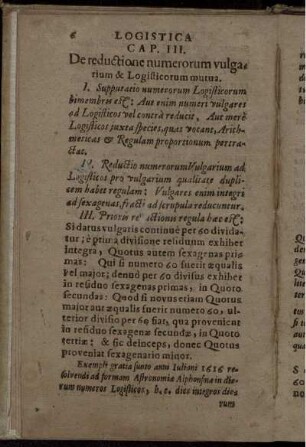 6 LOGISTICA
CAP. III.
De reductione numerorum vulga-
rium & Logisticorum mutua.
I. Supputatio numerorum Logisticorum
bimembris est: Aut enim numeri vulgares
ad Logisticos vel contrà reducit, Aut merè
Logisticos juxta species, quas vocant, Arith-
meticas & Regulam proportionum pertra-
ctat.
II. Reductio numerorum Vulgarium ad
Logisticos pro vulgarium qualitate dupli-
cem habet regulam; Vulgares enim integri
ad sexagenas, fracti ad scrupula reducuntur.
III. Prioris reductionis regula haec est:
Si datus vulgaris continuè per 60 divida-
tur; è prima divisione residuum exhibet
Integra, Quotus autem sexagenas pri-
mas: Qui si numero 60 fuerit aequalis
vel major; denuò per 60 divisus exhibet
in residuo sexagenas primas, in Quoto
secundas: Quod si novus etiam Quotus
major aut aequalis fuerit numero 60, ul-
terior divisio per 60 fiat, qua provenient
in residuo sexagenae secundae, in Quoto
tertiae: & sic deinceps, donec Quotus
proveniat sexagenario minor.
Exempli gratia sunto anni Iuliani 1616 re-
solvendi ad formam Astronomiae Alphonsinae in die-
rum numeros Logisticos, h. e. dies integros die-
rum